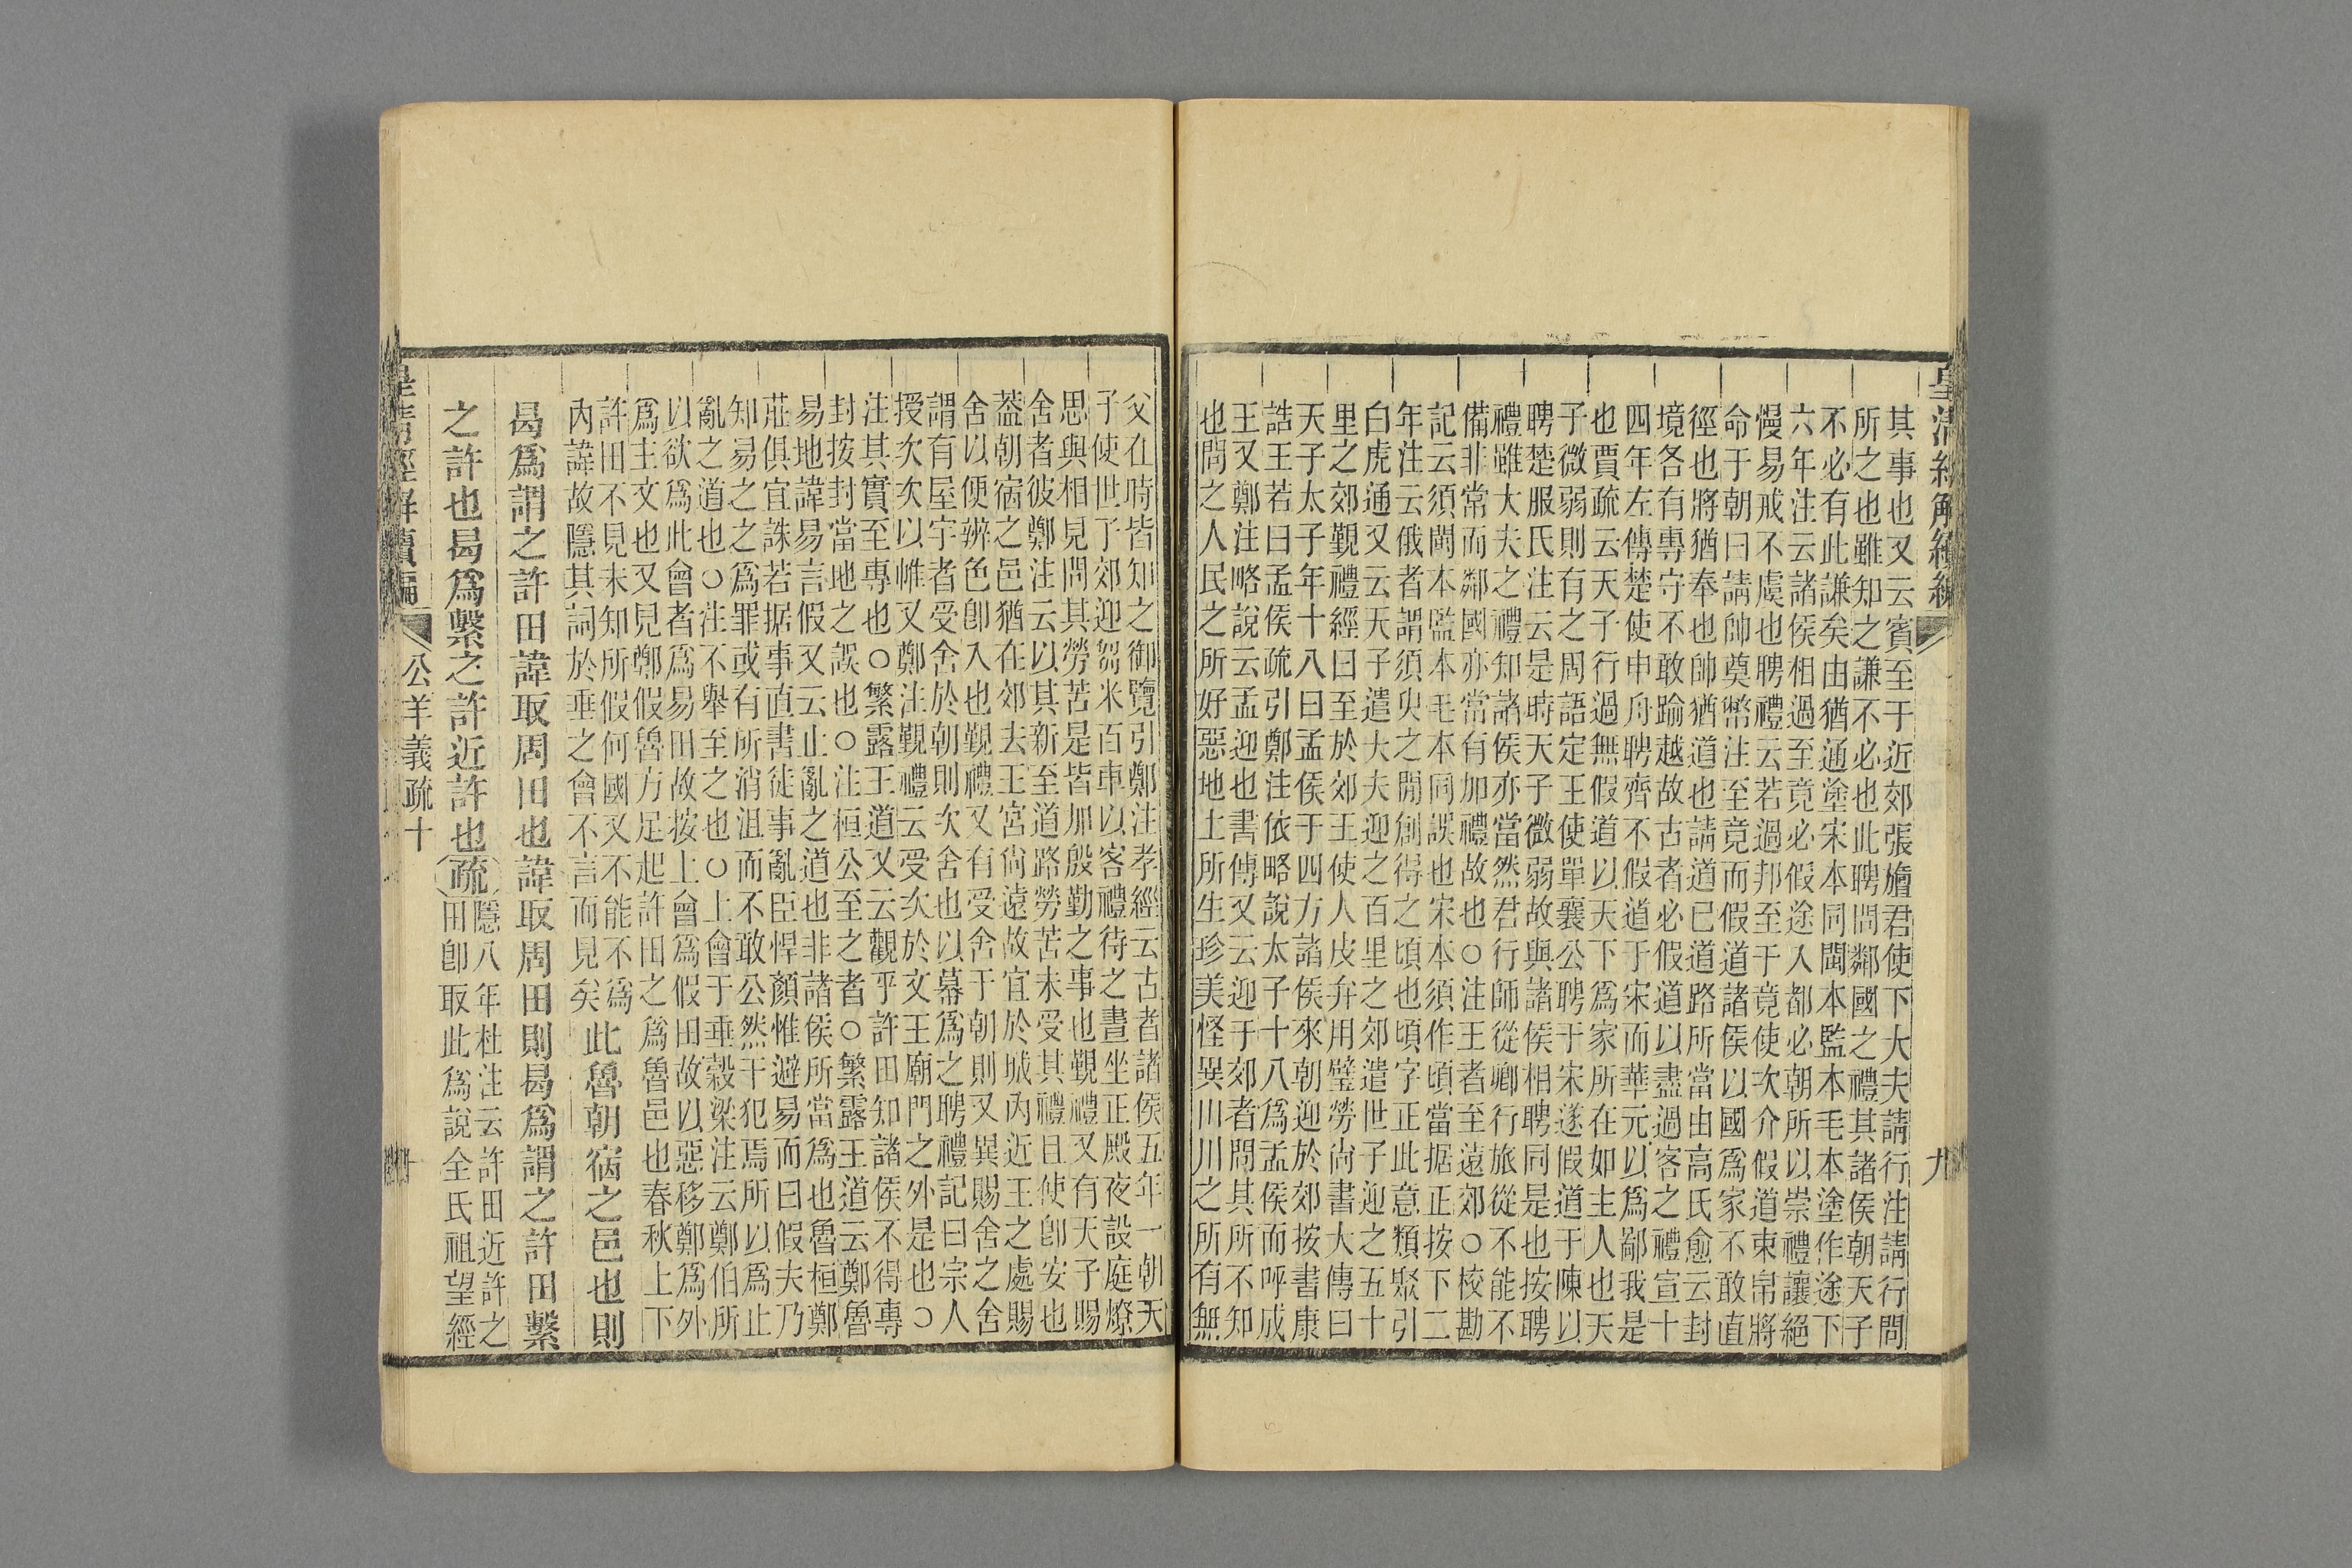 皇清經解續編
九
其事也又云賓至于近郊張旜君使下大夫請行注請行問
所之也雖知之謙不必也此聘問鄰國之禮其諸侯朝天子
不必有此謙矣由猶通塗宋本同閩本監本毛本塗作途下
六年注云諸侯相過至竟必假途入都必朝所以崇禮讓絕
慢易戒不虞也聘禮云若過邦至于竟使次介假道束帛將
命于朝曰請帥奠幣注至竟而假道諸侯以國為家不敢直
徑也將猶奉也帥猶道也請道己道路所當由高氏愈云封
境各有專守不敢踰越故古者必假道以盡過客之禮宣十
四年左傳楚使申舟聘齊不假道于宋而華元以為鄙我是
也賈疏云天子行過無假道以天下為家所在如主人也天
子微弱則有之周語定王使單襄公聘于宋遂假道于陳以
聘楚服氏注云是時天子微弱故與諸侯相聘同是也按聘
禮雖大夫之禮知諸侯亦當然君行師從卿行旅從不能不
備非常而鄰國亦當有加禮故也○注王者至遠郊○校勘
記云須閩本監本毛本同誤也宋本須作頃當据正按下二
年注云俄者謂須臾之閒創得之頃也頃字正此意類聚引
白虎通又云天子遣大夫迎之百里之郊遣世子迎之五十
里之郊覲禮經曰至於郊王使人皮弁用璧勞尚書大傳曰
天子太子年十八曰孟侯于四方諸侯來朝迎於郊按書康
誥王若曰孟侯疏引鄭注依略說太子十八為孟侯而呼成
王又鄭注略說云孟迎也書傳又云迎于郊者問其所不知
也問之人民之所好惡地土所生珍美怪異川川之所有無
父在時皆知之御覽引鄭注孝經云古者諸侯五年一朝天
子使世子郊迎芻米百車以客禮待之晝坐正殿夜設庭燎
思與相見問其勞苦是皆加殷勤之事也覲禮又有天子賜
舍者彼鄭注云以其新至道路勞苦未受其禮且使即安也
葢朝宿之邑猶在郊去王宮尙遠故宜於城內近王之處賜
舍以便辨色卽入也覲禮又有受舍于朝則又異賜舍之舍
謂有屋宇者受舍於朝則次舍也以幕為之聘禮記曰宗人
授次次以帷又鄭注覲禮云受次於文王廟門之外是也○
注其實至專也○繁露王道又云觀乎許田知諸侯不得專
封按封當地之誤也○注桓公至之者○繁露王道云鄭魯
易地諱易言假又云止亂之道也非諸侯所當為也魯桓鄭
莊俱宜誅若据事直書徒事亂臣悍顏惟避易而曰假夫乃
知易之之為罪或有所消沮而不敢公然干犯焉所以為止
亂之道也○注不舉至之也○上會于垂穀梁注云鄭伯所
以欲為此會者為易田故按上會為假田故以惡移鄭為外
為主文也又見鄭假魯方足起許田之為魯邑也春秋上下
許田不見未知所假何國又不能不為
內諱故隱其詞於垂之會不言而見矣
此魯朝宿之邑也則
曷爲謂之許田諱取周田也諱取周田則曷爲謂之許田繫
之許也曷爲繫之許近許也
疏
隱八年杜注云許田近許之
田卽取此為說全氏祖望經
皇清經解續編
公羊義疏十